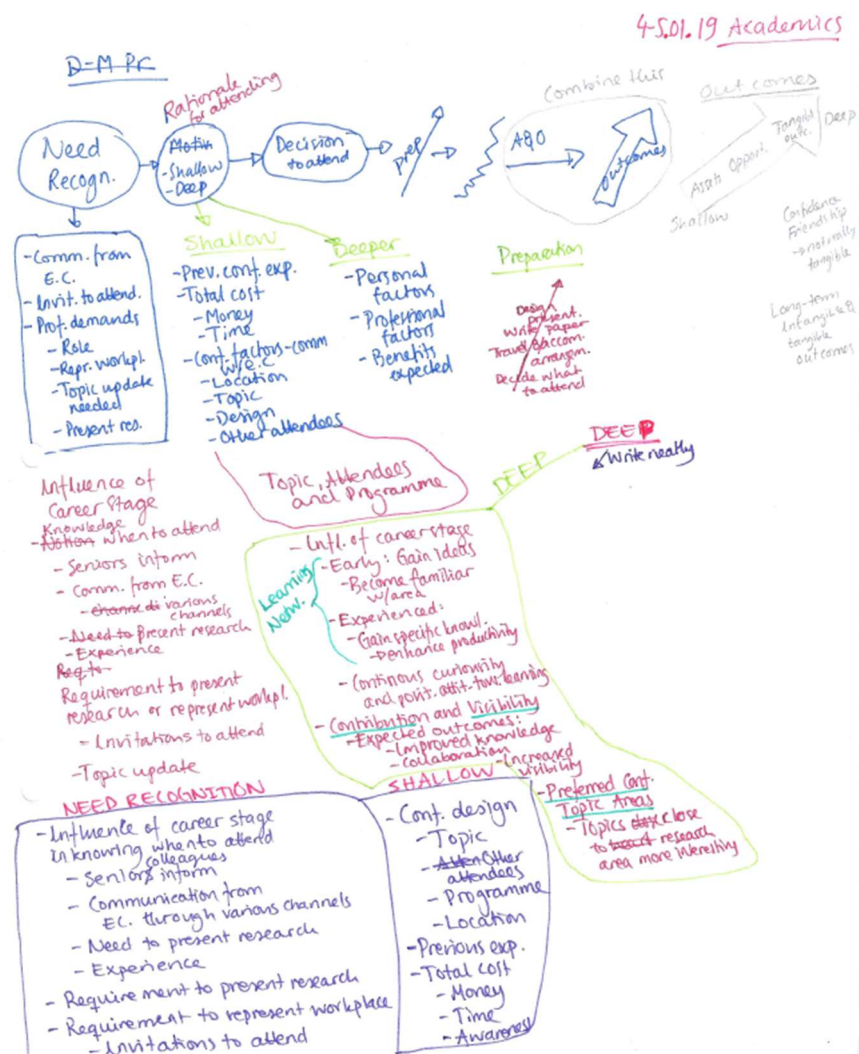 4-5.01.19 Academics
D-M Pr
Rationale
for attending
Combine this
Outcomes
Need
Recogn.
Motiv
-Shallow
-Deep
Decision
to attend
Prep
A&O
Outcomes
Assets Opport.
Tangible
outc.
Deep
Shallow
Confidence
Friendship
→not really
tangible
Long-term
intangible &
tangible
outcomes
-Comm. from
E.C.
-Invit. to attend.
-Prof. demands
-Role
-Repr. workpl.
-Topic update
needed
-Present res.
Shallow
-Prev. conf. exp.
-Total cost
-Money
-Time
-Conf. factors-comm
w/E.C
-Location
-Topic
-Design
-Other attendees
Deeper
-Personal
factors
-Professional
factors
-Benefits
expected
Preparation
Design
present.
Write paper
Travel & accom.
arrangem.
Decide what
to attend
Topic, Attendees
and Programme
DEEP
DEEP
Write neatly
Influence of
Career Stage
Knowledge
-Notion when to attend
-Seniors inform
-Comm. from E.C.
-channe di various
channels
-Need to present research
-Experience
Req to
Requirement to present
research or represent workpl.
-Invitations to attend
-Topic update
-Infl. of career stage
-Early: Gain ideas
-Become familiar
w/area
Learning
Netw.
-Experienced:
-Gain specific knowl.
→enhance productivity
-Continous curiousity
and posit. attit. tow. learning
-Contribution and Visibility
-Expected outcomes:
-Improved knowledge
-Collaboration
-Increased
visibility
-Preferred Conf.
Topic Areas
-Topics close
to research
area more interesting
NEED RECOGNITION
-Influence of career stage
in knowing when to attend
colleagues
-Seniors inform
-Communication from
EC. through various channels
-Need to present research
-Experience
-Requirement to present research
-Requirement to represent workplace
-Invitations to attend
SHALLOW
-Conf. design
-Topic
-Atten Other
attendees
-Programme
-Location
-Previous exp.
-Total cost
-Money
-Time
-Awareness